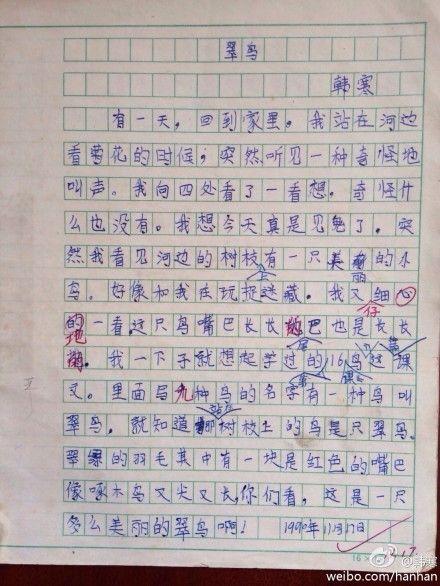 翠鸟
韩寒
有一天，回到家里。我站在河边
看菊花的时候，突然听见一种奇怪地
叫声。我向四处看了一看想。奇怪什
么也没有。我想今天真是见鬼了。突
然我看见河边的树枝有一只美的小
上 丽
鸟。好像和我在玩捉迷藏。我又细心
仔
的一看这只鸟嘴巴长长巴也是长长
地 尾
我一下子就想起学过的116鸟这课
第 课
文。里面写九种鸟的名字有一种鸟叫
翠鸟。就知道树枝上的鸟是只翠鸟。
站在
翠绿的羽毛其中有一块是红色的嘴巴
像啄木鸟又尖又长，你们看，这是一只
多么美丽的翠鸟啊！ 1990年11月17日
16×
17
weibo.com/hanhan